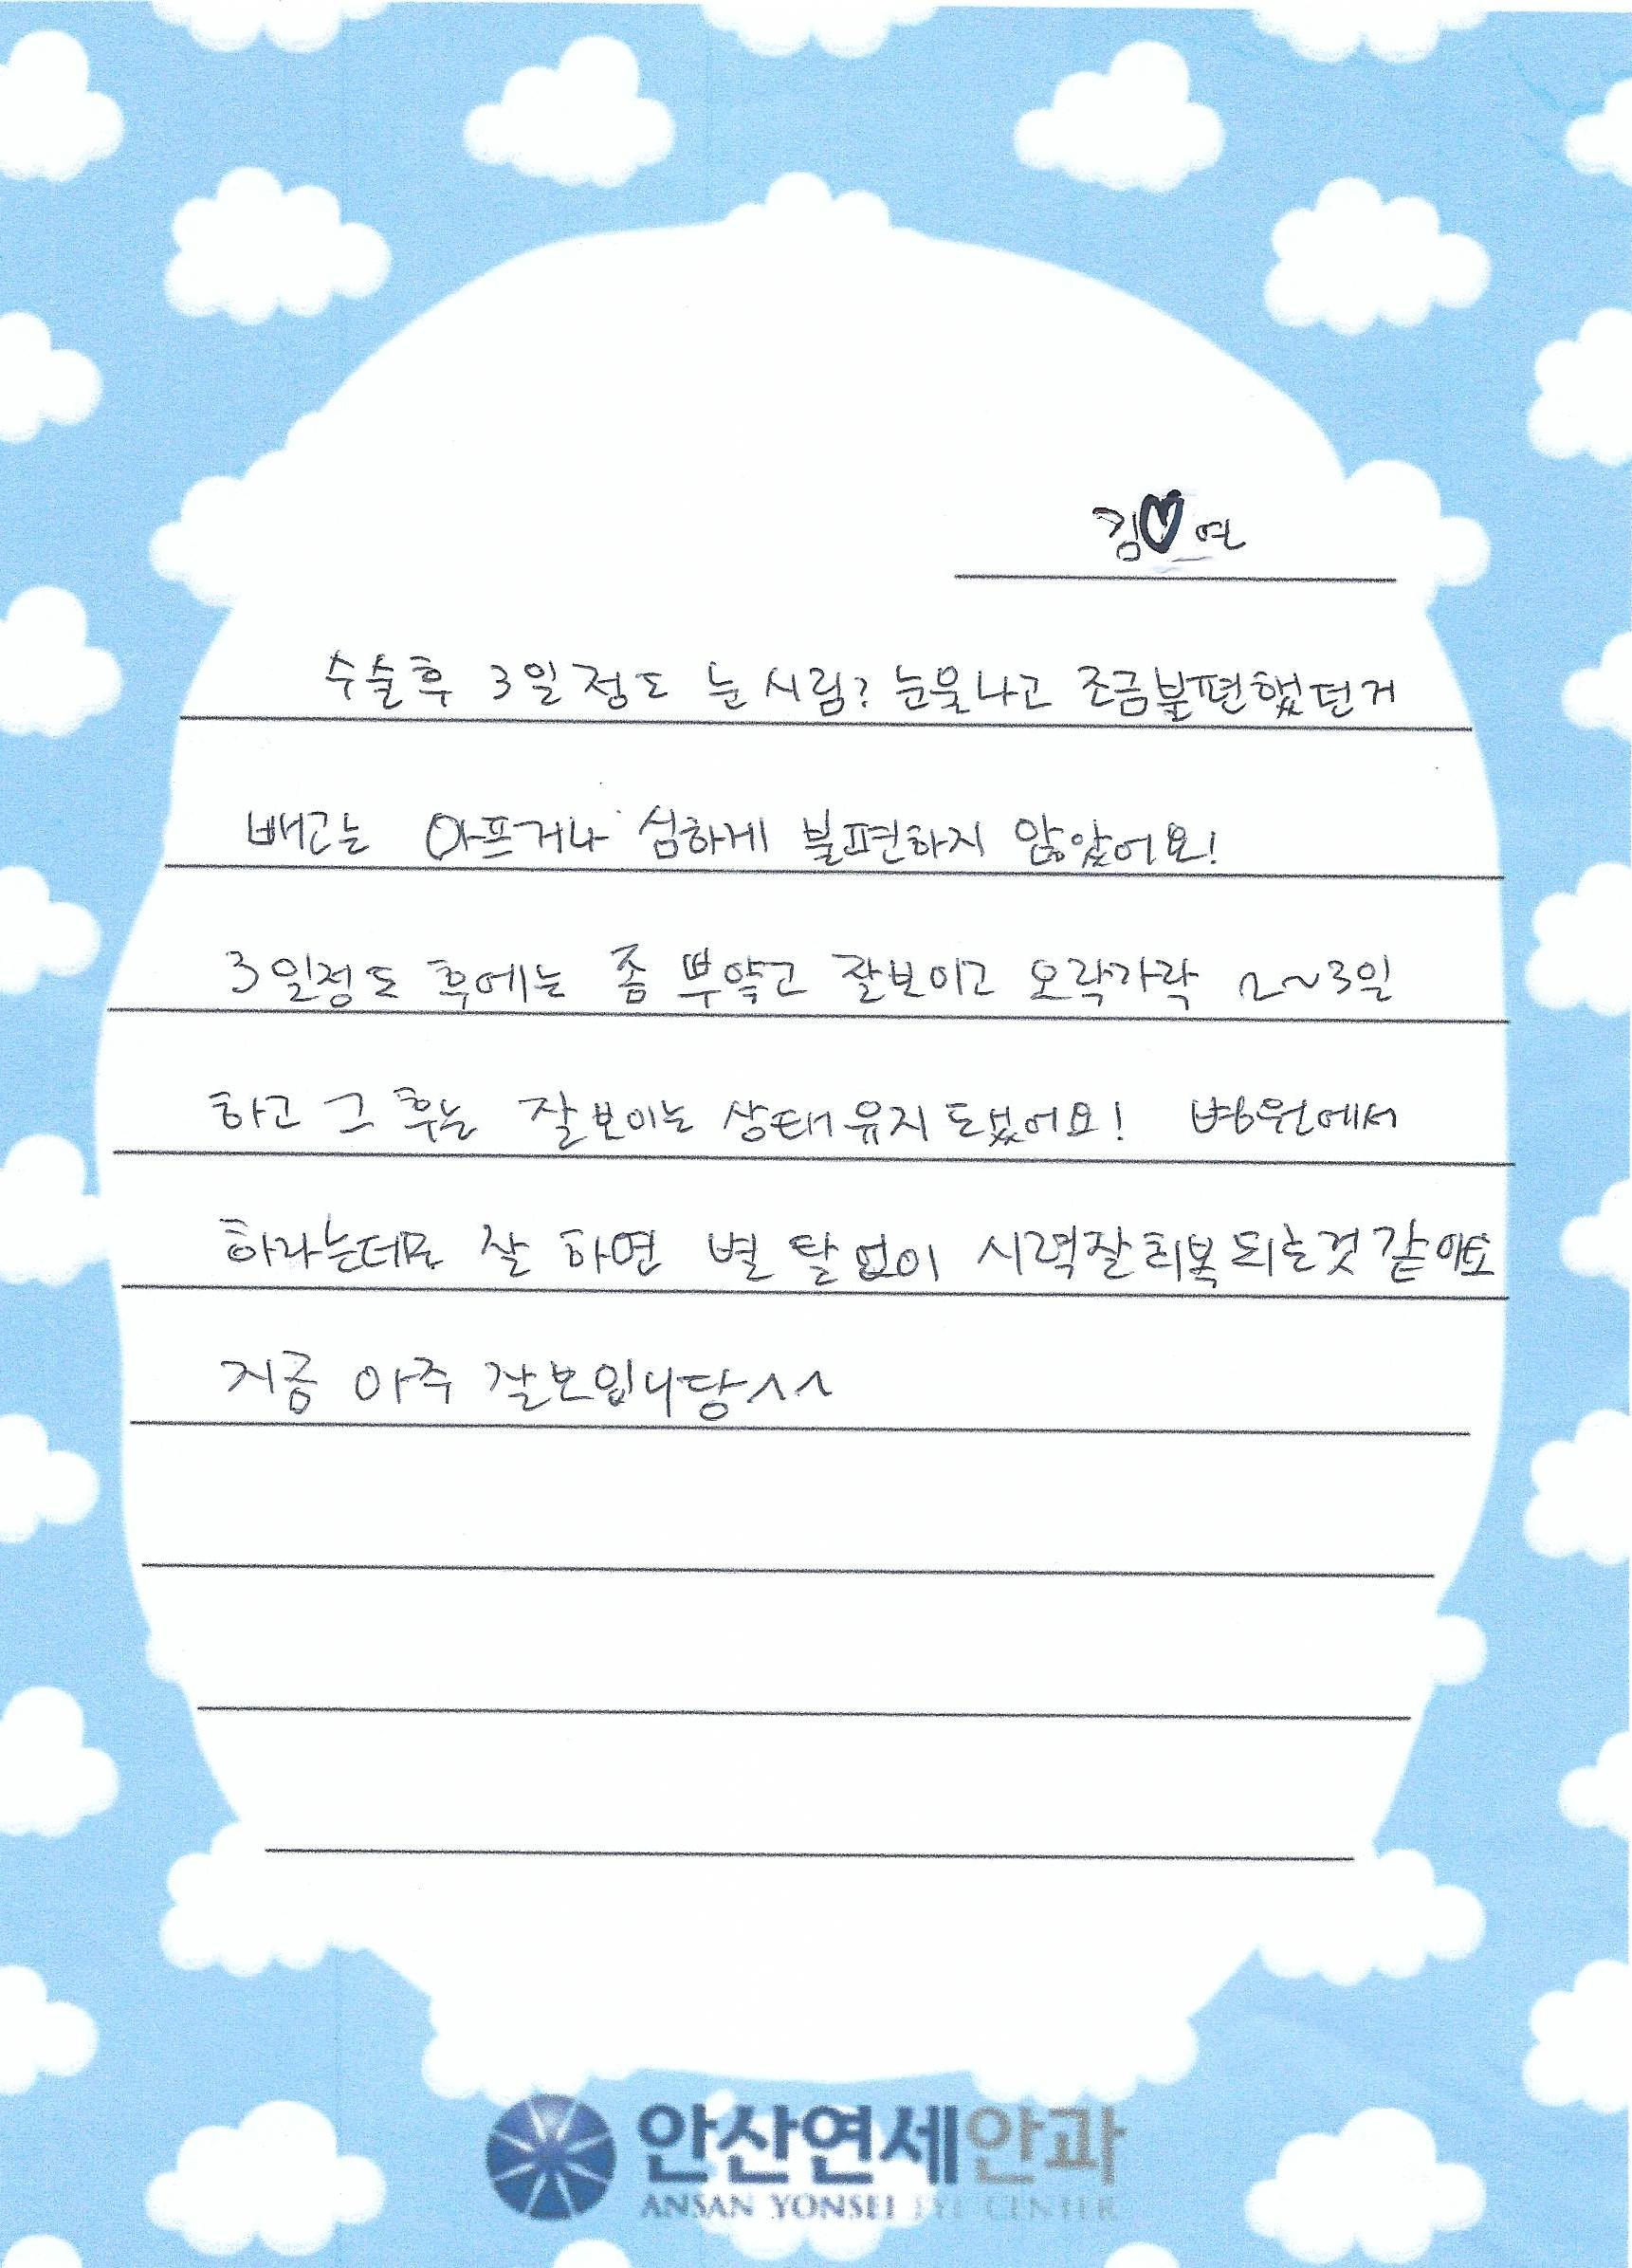 김♡연
수술후 3일정도 눈시림? 눈물나고 조금불편했던거
빼고는 아프거나 심하게 불편하지 않았어요!
3일정도 후에는 좀 뿌얗고 잘보이고 오락가락 2~3일
하고 그 후는 잘보이는 상태유지 됐어요! 병원에서
하라는데로 잘 하면 별 탈 없이 시력잘회복되는것 같아요
지금 아주 잘보입니당^^
안산연세안과
ANSAN YONSEI EYE CENTER